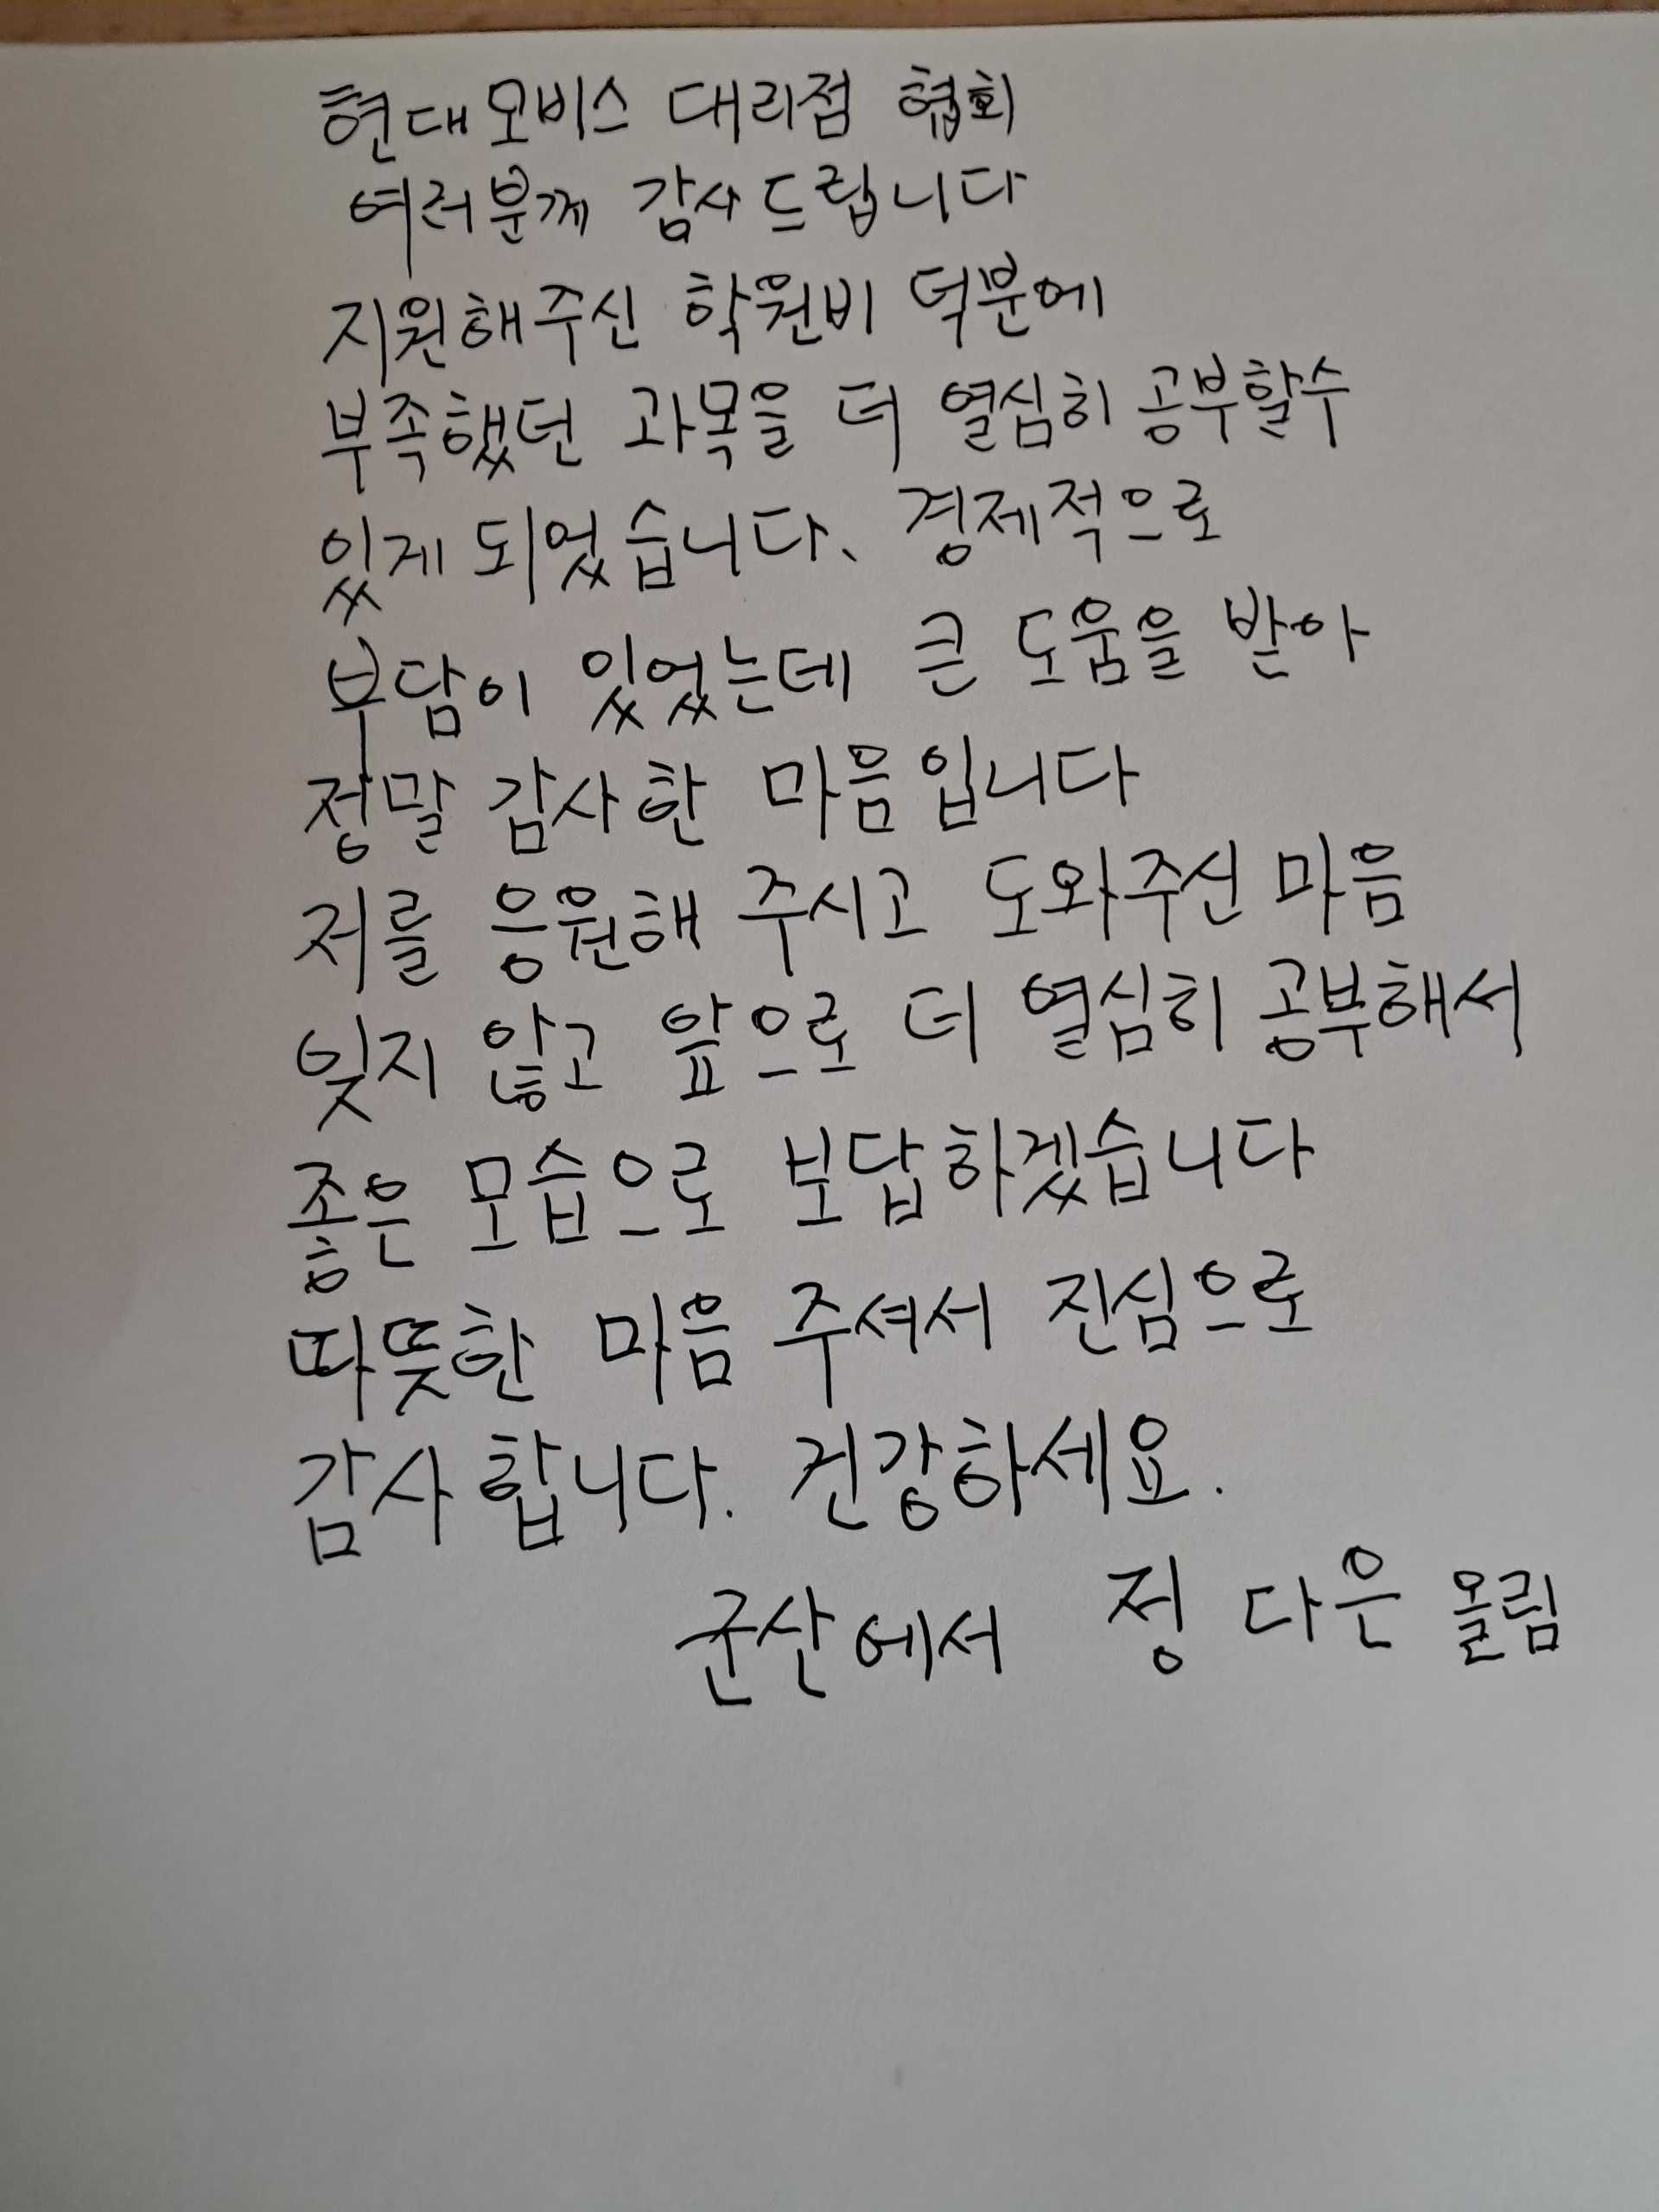 현대모비스 대리점 협회
여러분께 감사드립니다
지원해주신 학원비 덕분에
부족했던 과목을 더 열심히 공부할수
있게 되었습니다. 경제적으로
부담이 있었는데 큰 도움을 받아
정말 감사한 마음입니다
저를 응원해 주시고 도와주신 마음
잊지 않고 앞으로 더 열심히 공부해서
좋은 모습으로 보답하겠습니다
따뜻한 마음 주셔서 진심으로
감사합니다. 건강하세요.
군산에서 정다은 올림